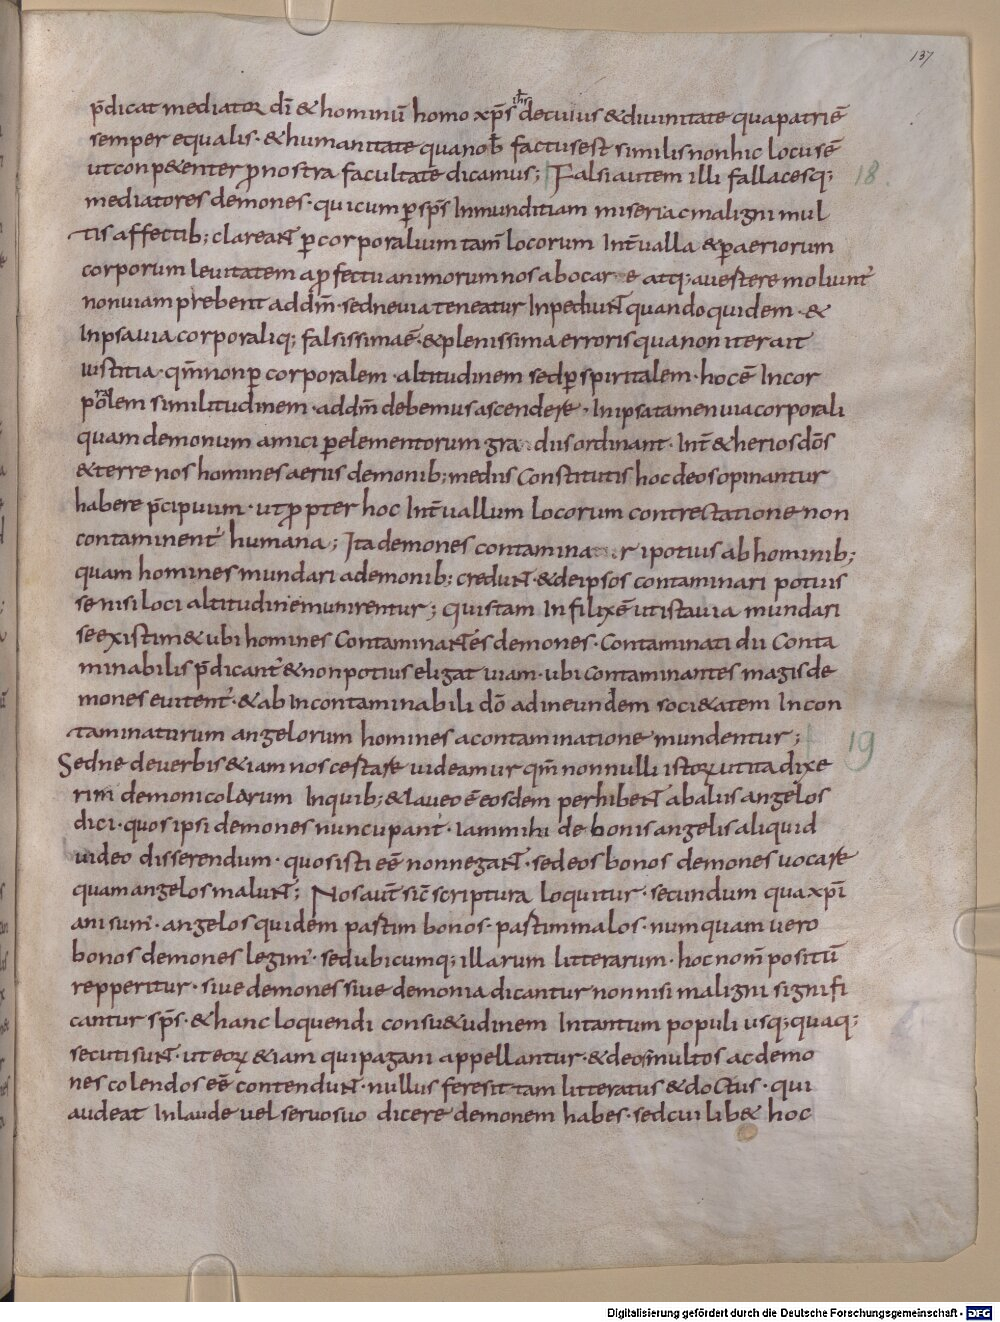 137
p̄dicat mediator dī & hominū homo xp̄s ih̄s de cuius & diuinitate qua patri ē
semper equalis · & humanitate qua nob̄ factus est similis non hic locus ē
ut conp&enter ꝓ nostra facultate dicamus; Falsi autem illi fallacesq; 18.
mediatores demones · qui cum ꝑ sp̄s Inmunditiam miseri ac maligni mul
tis affectib; clareant ꝑ corporaluim tam̄ locorum Int̄ualla & ꝑ aeriorum
corporum leuitatem a ꝓfectu animorum nos abocare atq; auertere moliunt̄
non uiam prebent ad dm̄ · sed ne uia teneatur Inpediunt quando quidem · &
In ipsa uia corporaliq; falsissima ē · & plenissima erroris qua non iter ait
iustitia · qm̄ non ꝑ corporalem · altitudinem sed ꝑ spiritalem · hoc ē Incor
poralem similitudinem · ad dm̄ debemus ascendere · In ipsa tamen uia corporali
quam demonum amici ꝑ elementorum gradus ordinant · Int̄ & herios dōs
& terre nos homines aeriis demonib; mediis Constitutis hoc deos opinantur
habere p̄cipuum · ut ꝓpter hoc Int̄uallum locorum contrectatione non
contaminent̄ humana; Ita demones contaminari potius ab hominib;
quam homines mundari a demonib; credunt · & de ipsos contaminari potuis
se nisi loci altitudine munirentur; quis tam Infilix ē ut ista uia mundari
se existim& ubi homines Contaminantes demones · Contaminati dii Conta
minabilis p̄dicant̄ & non potius eligat uiam · ubi contaminantes magis de
mones euitent̄ · & ab Incontaminabili dō ad ineundem soci&atem Incon
taminaturum angelorum homines a contaminatione mundentur;
Sed ne de uerbis & iam nos certare uideamur qm̄ nonnulli istorum ut ita dixe 19
rim demonicolarum Inquib; & laueo ē eosdem perhibent ab aliis angelos
dici · quos ipsi demones nuncupant̄ · Iam mihi de bonis angelis aliquid
uideo disserendum · quos isti eē non negant · sed eos bonos demones uocare
quam angelos malunt; Nos aut̄ sic̄ scriptura loquitur · secundum qua xp̄i
ani sum̄ · angelos quidem partim bonos · partim malos · numquam uero
bonos demones legim̄ · sed ubicumq; illarum litterarum · hoc nom̄ positū
repperitur · siue demones siue demonia dicantur non nisi maligni signifi
cantur sp̄s · & hanc loquendi consu&udinem Intantum populi usq; quaq;
secuti sunt · ut eorum & iam qui pagani appellantur · & deos multos ac demo
nes colendos eē contendunt · nullus fere sit tam litteratus & doctus · qui
audeat In laude uel seruo suo dicere demonem habes · sed cui lib& hoc
Digitalisierung gefördert durch die Deutsche Forschungsgemeinschaft - DFG